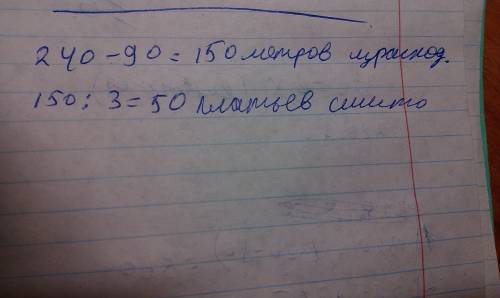 240 - 90 = 150 метров израсход.
150 : 3 = 50 платьев сшито